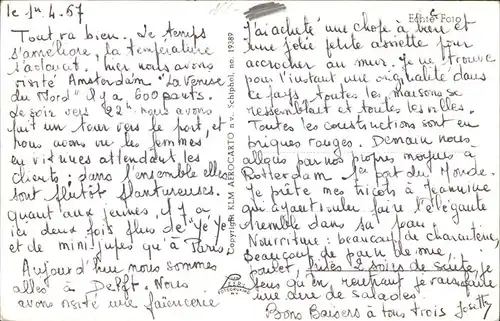 le 1er. 4. 67
Tout va bien. Le temps
s'améliore, la température
s'adoucit, hier nous avons
visité Amsterdam "La Venise
du Nord" Il y a 600 ponts.
Le soir vers 22h nous avons
fait un tour vers le port, et
nous avons vu les femmes
en vitrines attendant les
clients; dans l'ensemble elles
sont plutôt plantureuses.
quant aux jeunes, il y a
ici deux fois plus de "Yé Yé"
et de mini-jupes qu'à Paris
Aujourd'hui nous sommes
allés à Delft. Nous
avons visité une faïencerie
Copyright KLM AEROCARTO n.v. Schiphol, no. 19389
Echte Foto
J'ai acheté une chope à bière et
une jolie petite assiette pour
accrocher au mur. Je ne trouve
pour l'instant une originalité dans
ce pays toutes les maisons se
ressemblent et toutes les villes.
Toutes les constructions sont en
briques rouges. Demain nous
allons par nos propres moyens à
Rotterdam le port du Monde.
Je prête mes tricots à Jeannine
qui ayant voulu faire l'élégante
tremble dans sa peau.
Nourriture: beaucoup de charcuterie
Beaucoup de pain de mie,
poulet, 2 soirs de suite, je
sens qu'en rentrant je vais faire
une cure de salades.
Bons Baisers à tous trois Josette